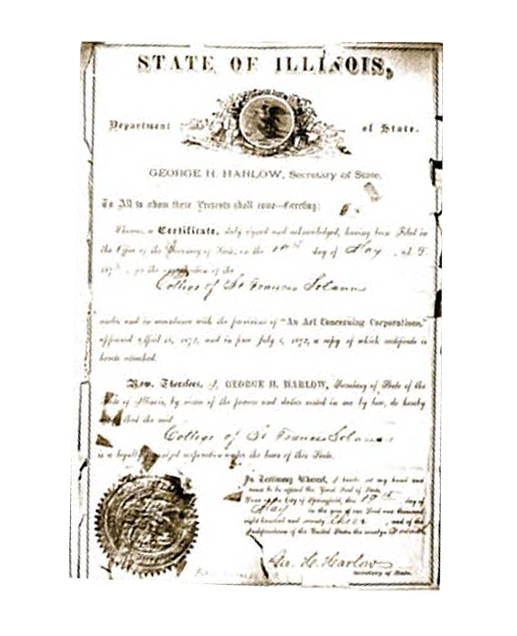 STATE OF ILLINOIS,
Department of State.
GEORGE H. HARLOW, Secretary of State.
To All to whom these Presents shall come—Greeting:
Whereas, a Certificate, duly signed and acknowledged, having been filed in
the Office of the Secretary of State, on the day of May A.D.
for the organization of the
College of St Francis Solanus
under and in accordance with the provisions of "An Act Concerning Corporations,"
approved April 18, 1872, and in force July 1, 1872, a copy of which certificate is
hereto attached.
Now, Therefore, I, GEORGE H. HARLOW, Secretary of State of the
State of Illinois, by virtue of the powers and duties vested in me by law, do hereby
that the said
College of St Francis Solanus
is a legally corporation under the laws of this State.
In Testimony Whereof, I hereto set my hand and
cause to be affixed the Great Seal of State.
City of Springfield, this 19th day of
May in the year of our Lord one thousand
eight hundred and seventy and of the
Independence of the United States the
Geo. H. Harlow
Secretary of State.